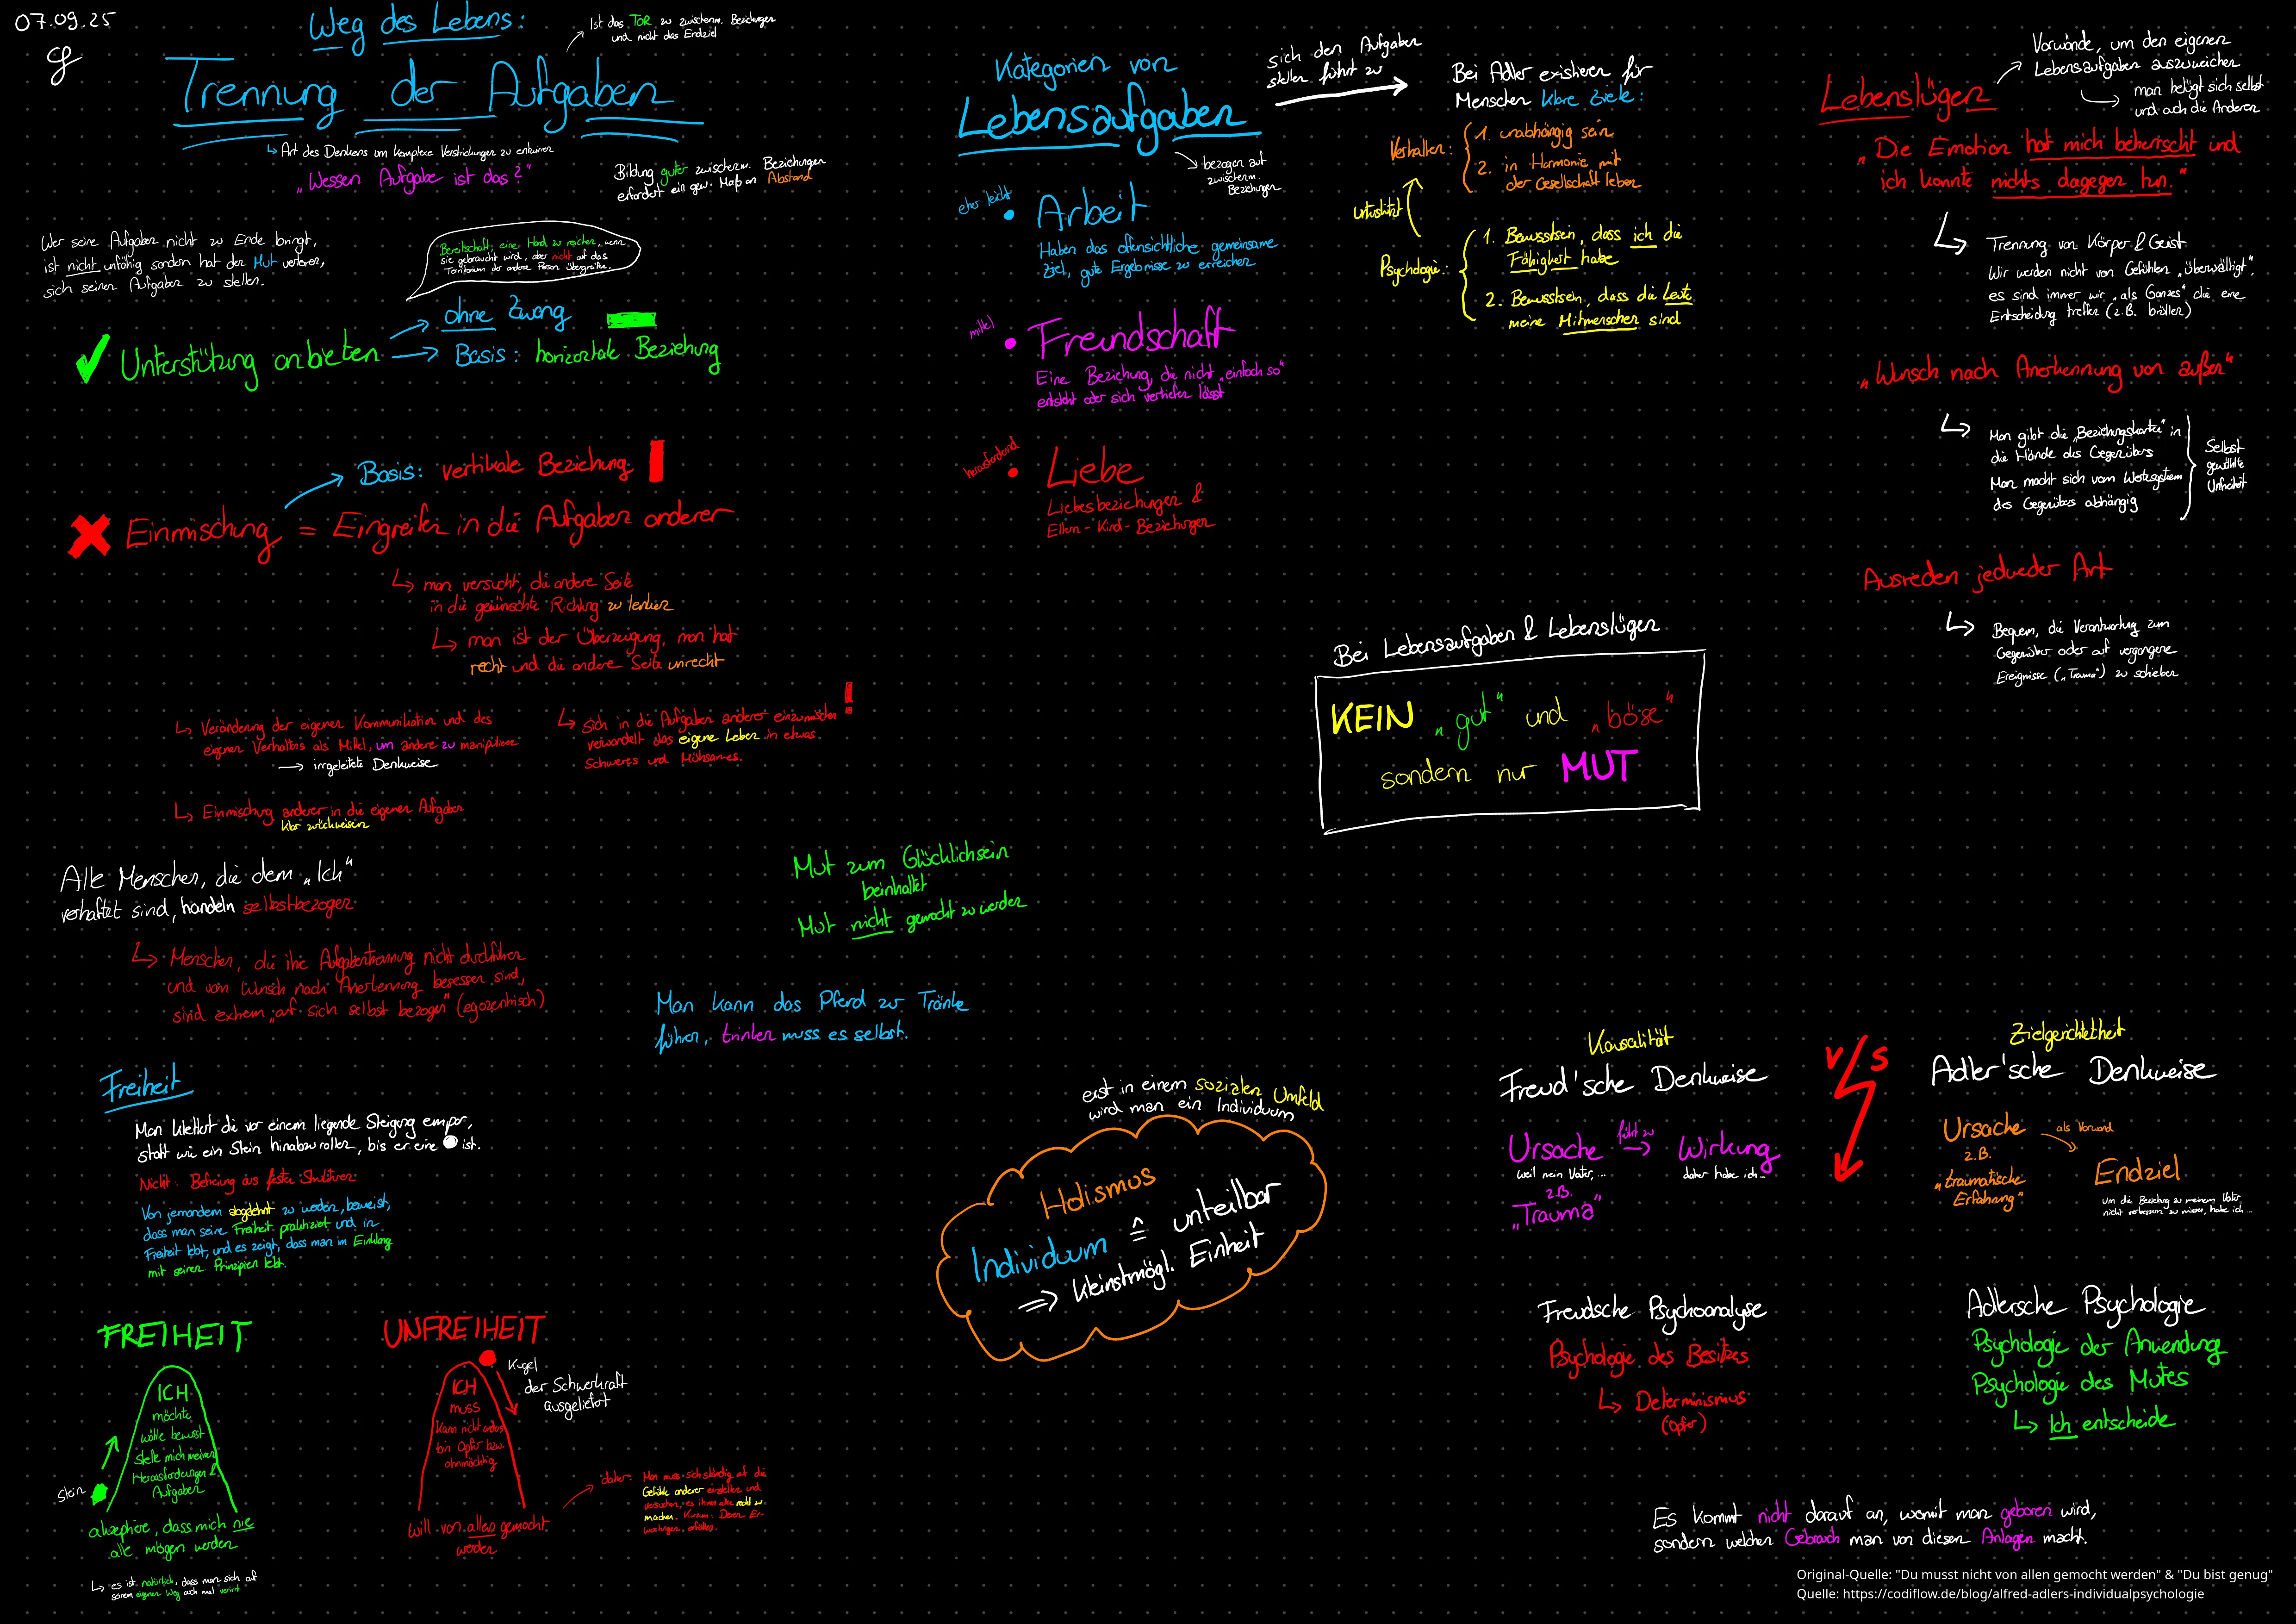 07.09.25
Weg des Lebens:
Trennung der Aufgaben
Ist das TOR zu zwischenm. Beziehungen
und nicht das Endziel
↳ Art des Denkens um komplexe Verstrickungen zu entwirren
„Wessen Aufgabe ist das?"
Bildung guter zwischenm. Beziehungen
erfordert ein gew. Maß an Abstand
Wer seine Aufgaben nicht zu Ende bringt,
ist nicht unfähig sondern hat den Mut verloren,
sich seinen Aufgaben zu stellen.
Bereitschaft, eine Hand zu reichen, wenn
sie gebraucht wird, aber nicht auf das
Territorium der andere Person übergreifen.
Unterstützung anbieten
→ ohne Zwang
→ Basis: horizontale Beziehung
Basis: vertikale Beziehung
Einmischung = Eingreifen in die Aufgaben anderer
↳ man versucht, die andere Seite
in die gewünschte Richtung zu lenken
↳ man ist der Überzeugung, man hat
recht und die andere Seite unrecht
↳ Veränderung der eigenen Kommunikation und des
eigenen Verhaltens als Mittel, um andere zu manipulieren
→ irrgeleitete Denkweise
↳ sich in die Aufgaben anderer einzumischen
verwandelt das eigene Leben in etwas
Schweres und Mühsames.
↳ Einmischung anderer in die eigenen Aufgaben
klar zurückweisen
Alle Menschen, die dem „Ich"
verhaftet sind, handeln selbstbezogen
↳ Menschen, die ihre Aufgabentrennung nicht durchführen
und vom Wunsch nach Anerkennung besessen sind,
sind extrem „auf sich selbst bezogen" (egozentrisch)
Mut zum Glücklichsein
beinhaltet
Mut nicht gemocht zu werden
Man kann das Pferd zur Tränke
führen, trinken muss es selbst.
Freiheit
Man klettert die vor einem liegende Steigung empor,
statt wie ein Stein hinabzurollen, bis er eine ist.
Nicht: Befreiung aus fester Strukturen
Von jemandem abgelehnt zu werden, beweist,
dass man seine Freiheit praktiziert und in
Freiheit lebt, und es zeigt, dass man im Einklang
mit seinen Prinzipien lebt.
FREIHEIT
ICH
möchte
wähle bewusst
stelle mich meinen
Herausforderungen &
Aufgaben
Stein
akzeptiere, dass mich nie
alle mögen werden
↳ es ist natürlich, dass man sich auf
seinem eigenen Weg auch mal verirrt
UNFREIHEIT
ICH
muss
kann nicht anders
bin Opfer bzw.
ohnmächtig
Kugel
der Schwerkraft
ausgeliefert
will von allen gemocht
werden
daher: Man muss sich ständig auf die
Gefühle anderer einstellen und
versuchen, es ihnen allen recht zu
machen. Kurzum: Deren Er-
wartungen erfüllen.
Kategorien von
Lebensaufgaben
bezogen auf
zwischenm.
Beziehungen
eher leicht
Arbeit
Haben das offensichtliche gemeinsame
Ziel, gute Ergebnisse zu erreichen
mittel
Freundschaft
Eine Beziehung, die nicht „einfach so"
entsteht oder sich vertiefen lässt
herausfordernd
Liebe
Liebesbeziehungen &
Eltern-Kind-Beziehungen
sich den Aufgaben
stellen führt zu
Bei Adler existieren für
Menschen klare Ziele:
Verhalten:
1. unabhängig sein
2. in Harmonie mit
der Gesellschaft leben
unterstützt
Psychologie:
1. Bewusstsein, dass ich die
Fähigkeit habe
2. Bewusstsein, dass die Leute
meine Mitmenschen sind
Lebenslügen
Vorwände, um den eigenen
Lebensaufgaben auszuweichen
man belügt sich selbst
und auch die Anderen
„Die Emotion hat mich beherrscht und
ich konnte nichts dagegen tun."
Trennung von Körper & Geist
Wir werden nicht von Gefühlen „überwältigt",
es sind immer wir „als Ganzes" die eine
Entscheidung treffen (z.B. brüllen)
„Wunsch nach Anerkennung von außen"
Man gibt die „Beziehungskarten" in
die Hände des Gegenübers
Man macht sich vom Wertesystem
des Gegenübers abhängig
Selbst
gewählte
Unfreiheit
Ausreden jedweder Art
Bequem, die Verantwortung zum
Gegenüber oder auf vergangene
Ereignisse („Trauma") zu schieben
Bei Lebensaufgaben & Lebenslügen
KEIN „gut" und „böse"
sondern nur MUT
erst in einem sozialen Umfeld
wird man ein Individuum
Holismus
Individuum ≙ unteilbar
⇒ kleinstmögl. Einheit
Kausalität
Freud'sche Denkweise
Ursache führt zu → Wirkung
weil mein Vater,...
daher habe ich...
z.B.
„Trauma"
V/S
Zielgerichtetheit
Adler'sche Denkweise
Ursache
als Vorwand
z.B.
„traumatische
Erfahrung"
Endziel
um die Beziehung zu meinem Vater,
nicht verbessern zu müssen, habe ich...
Freudsche Psychoanalyse
Psychologie des Besitzes
↳ Determinismus
(Opfer)
Adlersche Psychologie
Psychologie der Anwendung
Psychologie des Mutes
↳ Ich entscheide
Es kommt nicht darauf an, womit man geboren wird,
sondern welchen Gebrauch man von diesen Anlagen macht.
Original-Quelle: "Du musst nicht von allen gemocht werden" & "Du bist genug"
Quelle: https://codiflow.de/blog/alfred-adlers-individualpsychologie